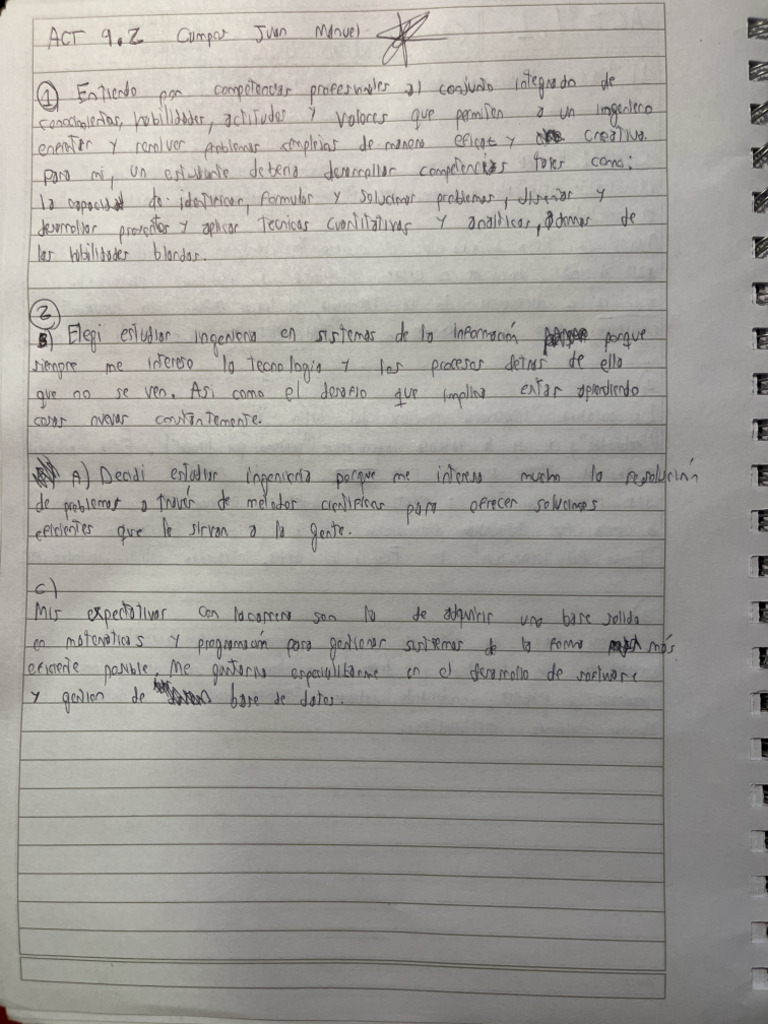 ACT 9.2 Cumpas Juan Manuel
① Entiendo por competencias profesionales al conjunto integrado de
conocimientos, habilidades, actitudes y valores que permiten a un ingeniero
enfrentar y resolver problemas complejos de manera eficaz y creativa.
Para mi, un estudiante deberia desarrollar competencias tales como:
la capacidad de identificar, formular y solucionar problemas, diseñar y
desarrollar proyectos y aplicar tecnicas cuantitativas y analiticas, ademas de
las habilidades blandas.
②
B) Elegi estudiar ingenieria en sistemas de la información porque
siempre me intereso la tecnologia y los procesos detras de ella
que no se ven. Asi como el desafio que implica estar aprendiendo
cosas nuevas constantemente.
A) Decidi estudiar ingenieria porque me interesa mucho la resolución
de problemas a través de metodos cientificos para ofrecer soluciones
eficientes que le sirvan a la gente.
C)
Mis expectativas con la carrera son la de adquirir una base solida
en matemáticas y programación para gestionar sistemas de la forma más
eficiente posible. Me gustaria especializarme en el desarrollo de software
y gestion de base de datos.